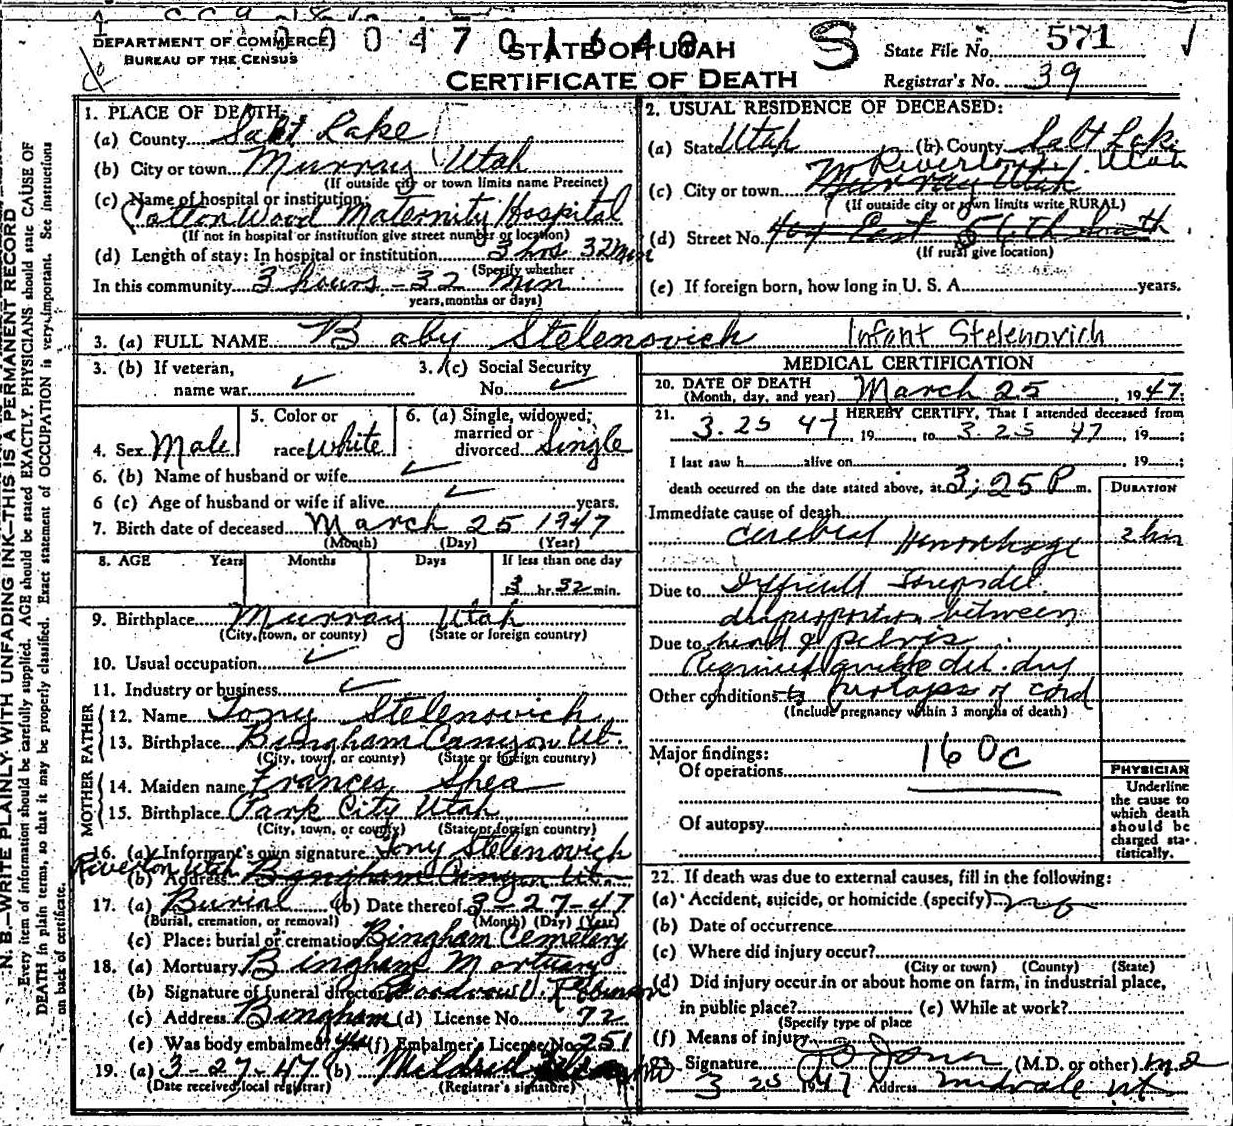 DEPARTMENT OF COMMERCE
BUREAU OF THE CENSUS
0004701640
STATE OF UTAH
CERTIFICATE OF DEATH
S
State File No. 571
Registrar's No. 39
N. B.—WRITE PLAINLY WITH UNFADING INK—THIS IS A PERMANENT RECORD
Every item of information should be carefully supplied. AGE should be stated EXACTLY. PHYSICIANS should state CAUSE OF
DEATH in plain terms, so that it may be properly classified. Exact statement of OCCUPATION is very important. See instructions
on back of certificate.
1. PLACE OF DEATH:
(a) County Salt Lake
(b) City or town Murray Utah
(If outside city or town limits name Precinct)
(c) Name of hospital or institution:
Cottonwood Maternity Hospital
(If not in hospital or institution give street number or location)
(d) Length of stay: In hospital or institution 3 hrs 32 min
(Specify whether
In this community 3 hours - 32 min
years, months or days)
2. USUAL RESIDENCE OF DECEASED:
(a) State Utah (b) County Salt Lake
Riverton, Utah
(c) City or town Murray Utah
(If outside city or town limits write RURAL)
(d) Street No. East South
(If rural give location)
(e) If foreign born, how long in U. S. A. years.
3. (a) FULL NAME Baby Stelenovich Infant Stelenovich
3. (b) If veteran,
name war
3. (c) Social Security
No.
4. Sex Male
5. Color or
race White
6. (a) Single, widowed,
married or
divorced Single
6. (b) Name of husband or wife
6 (c) Age of husband or wife if alive years.
7. Birth date of deceased March 25 1947
(Month) (Day) (Year)
8. AGE Years Months Days If less than one day
3 hr. 32 min.
9. Birthplace Murray Utah
(City, town, or county) (State or foreign country)
10. Usual occupation
11. Industry or business
FATHER
12. Name Tony Stelenovich
13. Birthplace Bingham Canyon Ut.
(City, town, or county) (State or foreign country)
MOTHER
14. Maiden name Frances Shea
15. Birthplace Park City Utah
(City, town, or county) (State or foreign country)
16. (a) Informant's own signature Tony Stelenovich
Riverton Utah
(b) Address Bingham Canyon Ut.
17. (a) Burial (b) Date thereof 3-27-47
(Burial, cremation, or removal) (Month) (Day) (Year)
(c) Place: burial or cremation Bingham Cemetery
18. (a) Mortuary Bingham Mortuary
(b) Signature of funeral director Woodrow U. Robinson
(c) Address Bingham (d) License No. 72
(e) Was body embalmed? yes (f) Embalmer's License No. 251
19. (a) 3-27-47 (b) Mildred
(Date received local registrar) (Registrar's signature)
MEDICAL CERTIFICATION
20. DATE OF DEATH
(Month, day, and year) March 25, 1947
21. I HEREBY CERTIFY, That I attended deceased from
3.25 47, 19 to 3.25 47, 19 ;
I last saw h alive on 19 ;
death occurred on the date stated above, at 3:25 P m.
DURATION
Immediate cause of death
Cerebral Hemorrhage 2 hrs
Due to Difficult forceps del.
disproportion between
Due to head & pelvis
Required del.
Other conditions prolapse of cord
(Include pregnancy within 3 months of death)
Major findings:
Of operations 160c
Of autopsy
PHYSICIAN
Underline
the cause to
which death
should be
charged sta-
tistically.
22. If death was due to external causes, fill in the following:
(a) Accident, suicide, or homicide (specify) no
(b) Date of occurrence
(c) Where did injury occur?
(City or town) (County) (State)
(d) Did injury occur in or about home on farm, in industrial place,
in public place? (e) While at work?
(Specify type of place
(f) Means of injury
23. Signature Jones (M.D. or other) M.D
3 25 1947 Address Midvale Ut.